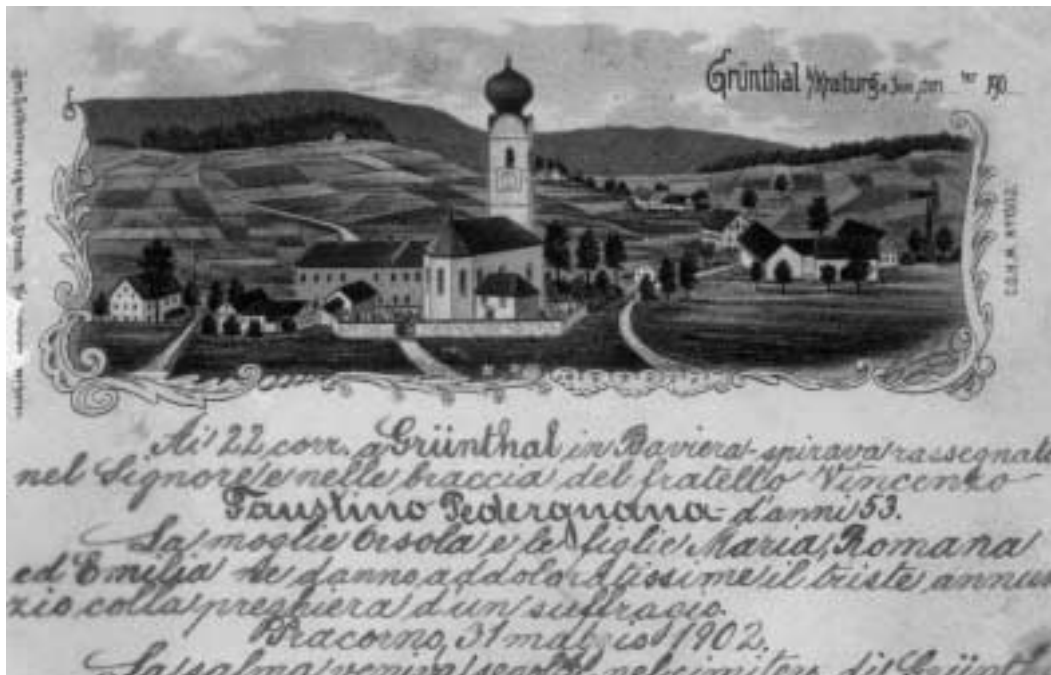 Grünthal b/Kraiburg a. Inn, den ter 190
Ai 22 corr. a Grünthal in Baviera spirava rassegnato
nel Signore e nelle braccia del fratello Vincenzo
Faustino Pedergnana - d'anni 53.
La moglie Orsola e le figlie Maria, Romana
ed Emilia ne danno addoloratissime il triste annun
zio colla preghiera d'un suffragio.
Pracorno, 31 maggio 1902.
La salma veniva sepolta nel cimitero di Grünth